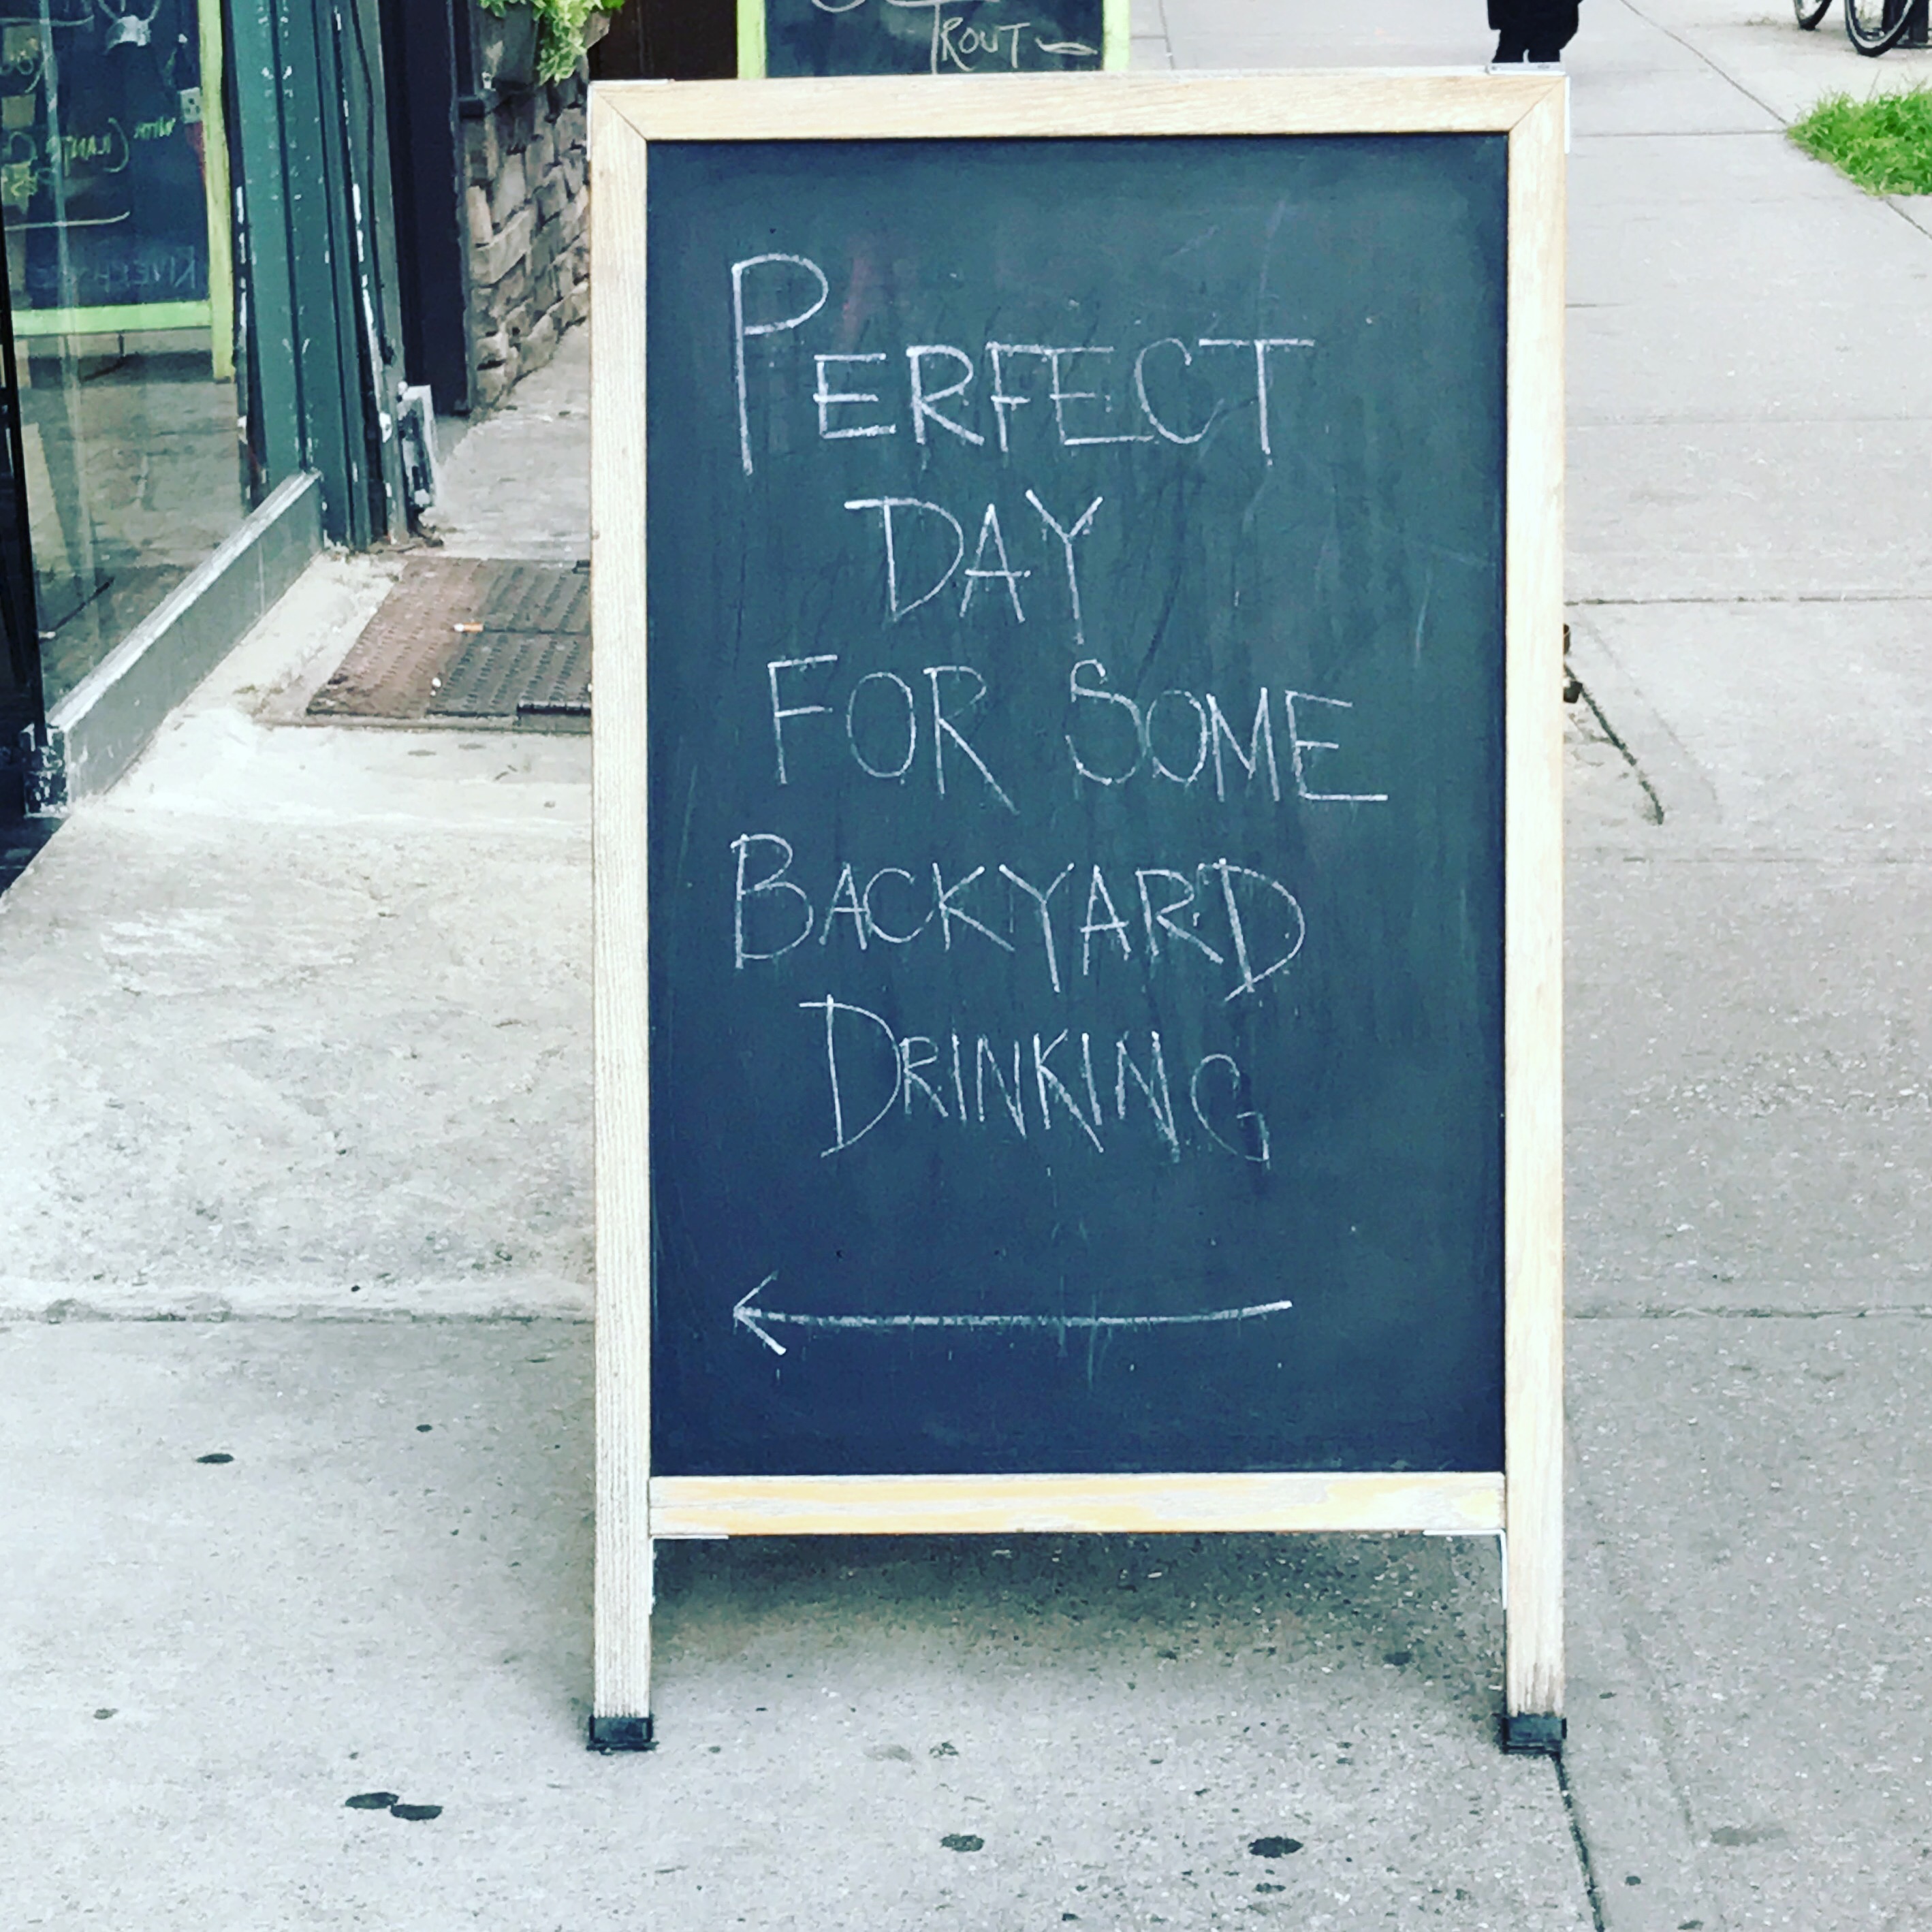 TROUT
PERFECT
DAY
FOR SOME
BACKYARD
DRINKING